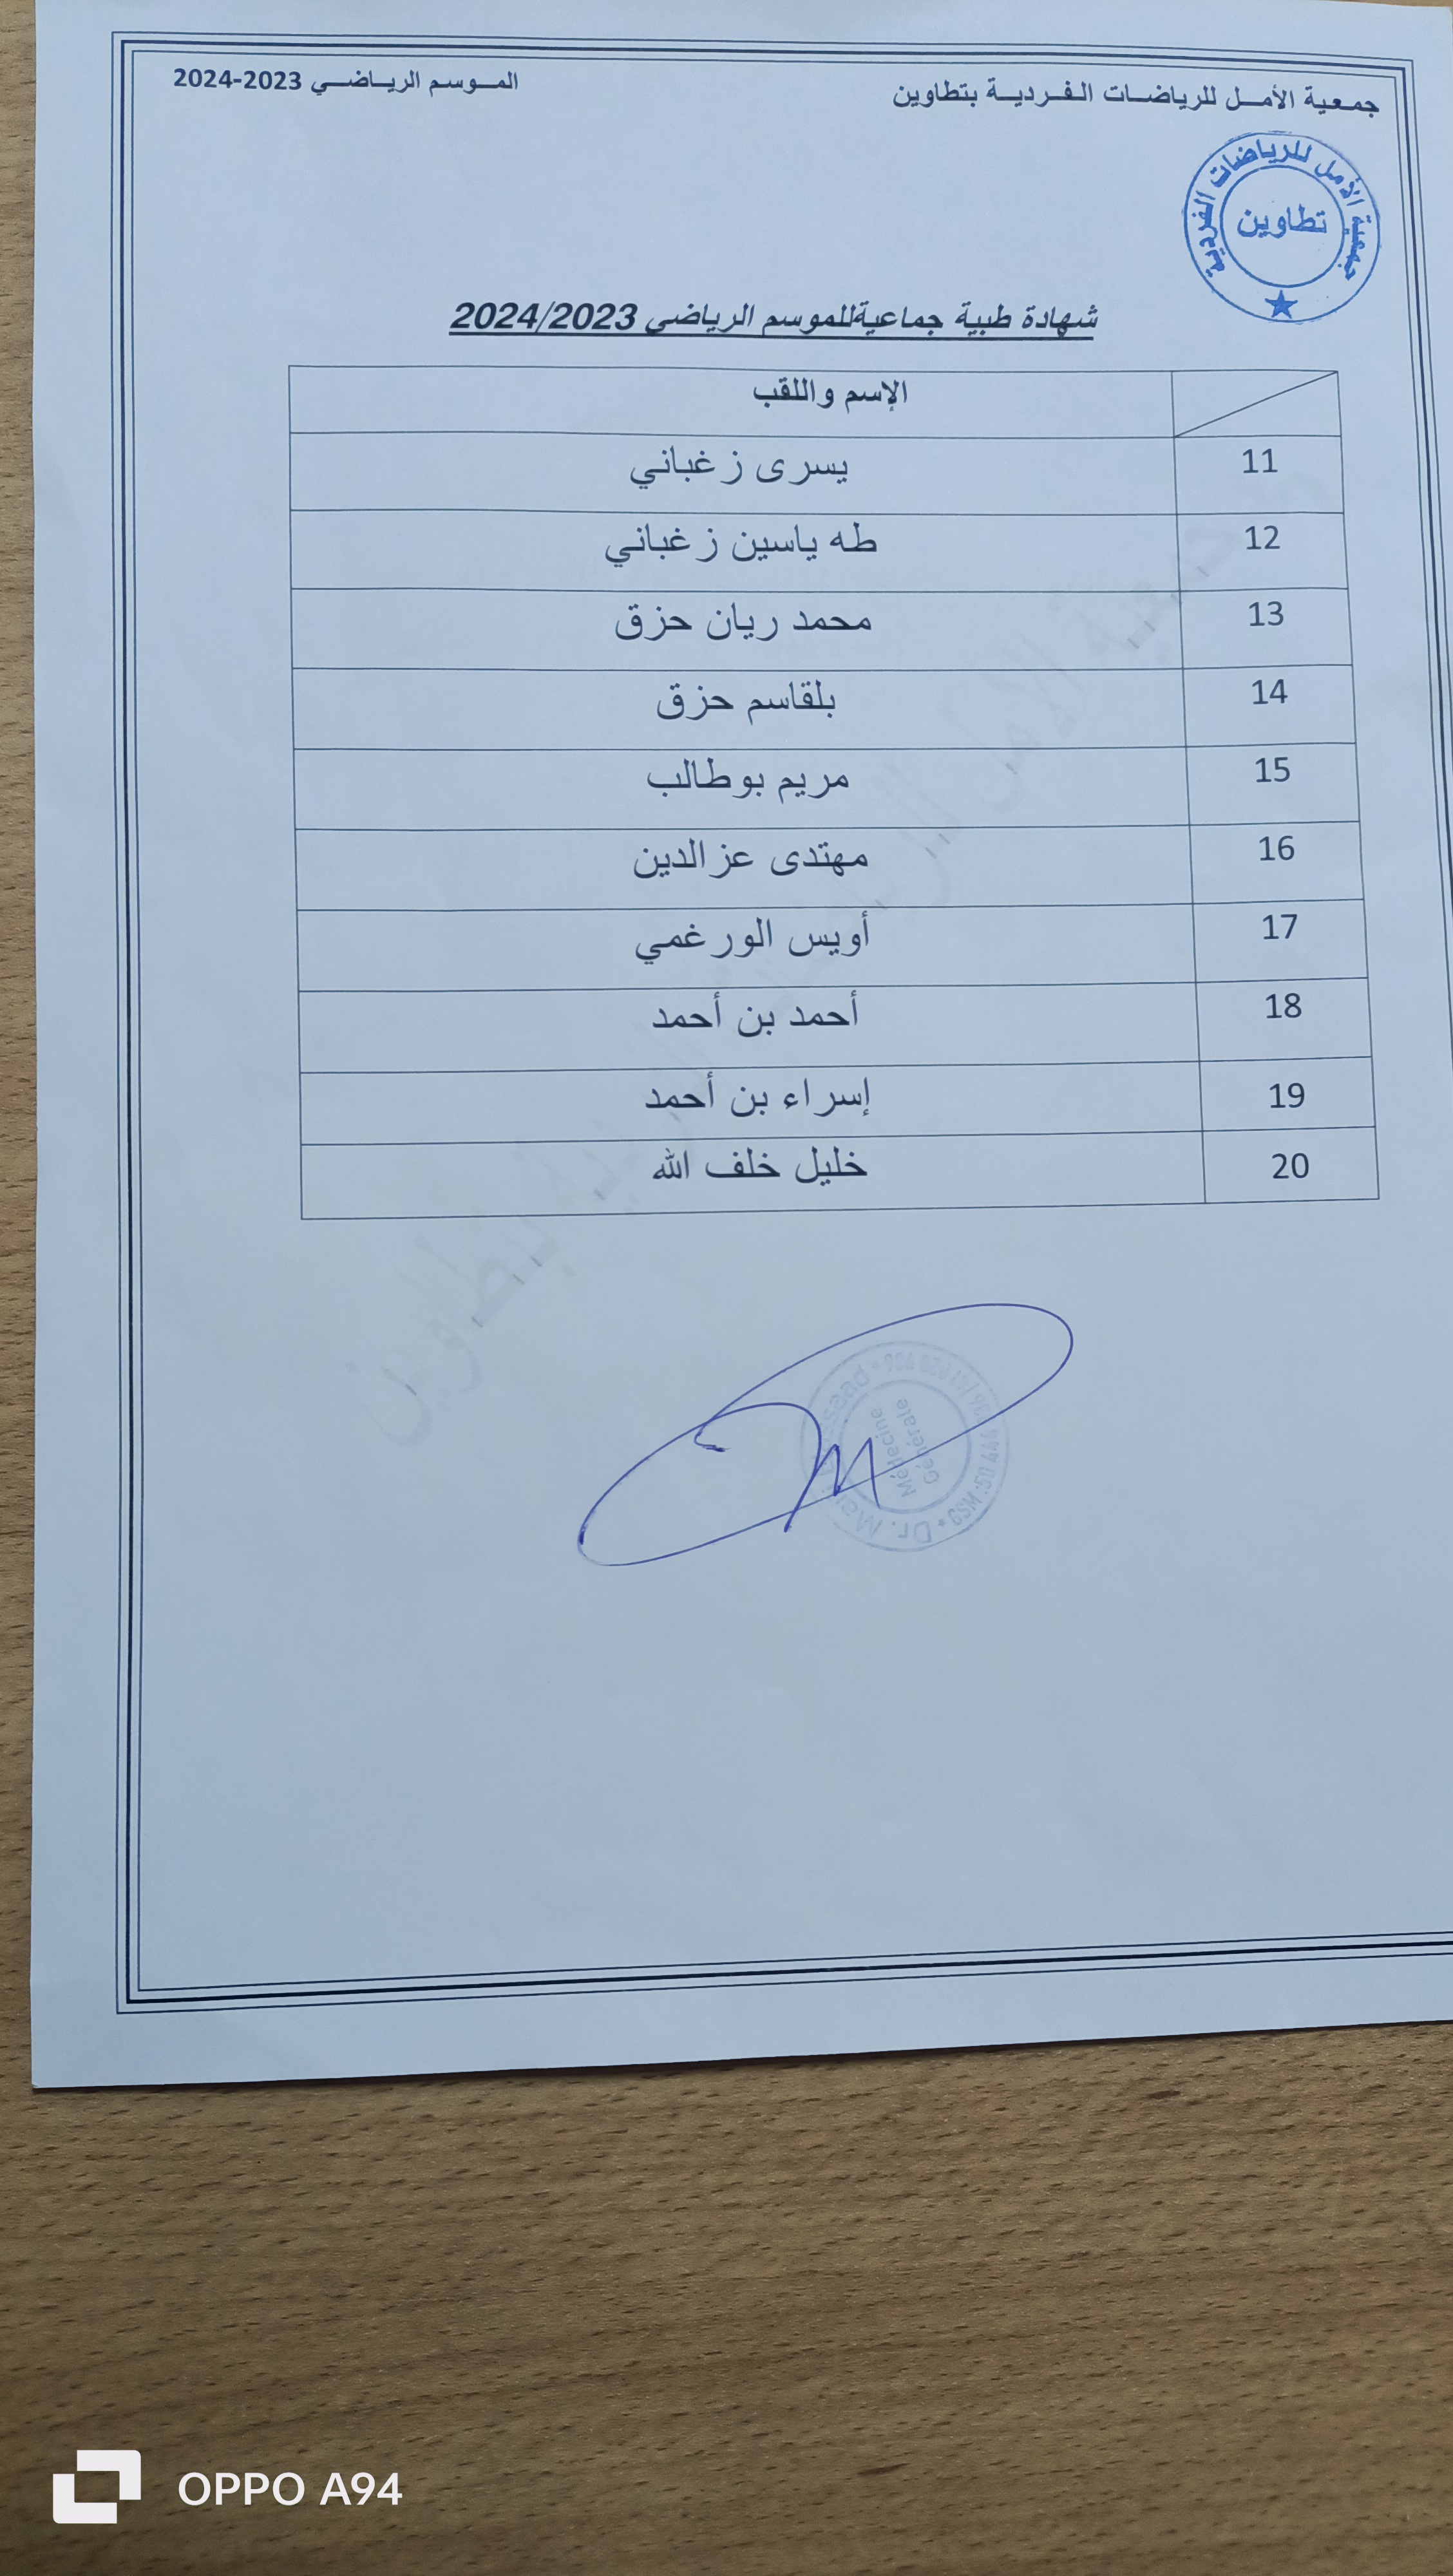 جمعية الأمل للرياضات الفردية بتطاوين
الموسم الرياضي 2023-2024
جمعية الأمل للرياضات الفردية
تطاوين
شهادة طبية جماعيةللموسم الرياضي 2024/2023
الإسم واللقب
11 يسرى زغباني
12 طه ياسين زغباني
13 محمد ريان حزق
14 بلقاسم حزق
15 مريم بوطالب
16 مهتدى عزالدين
17 أويس الورغمي
18 أحمد بن أحمد
19 إسراء بن أحمد
20 خليل خلف الله
جمعية الأمل للرياضات الفردية بتطاوين
Médecine
Générale
Dr.
GSM
OPPO A94